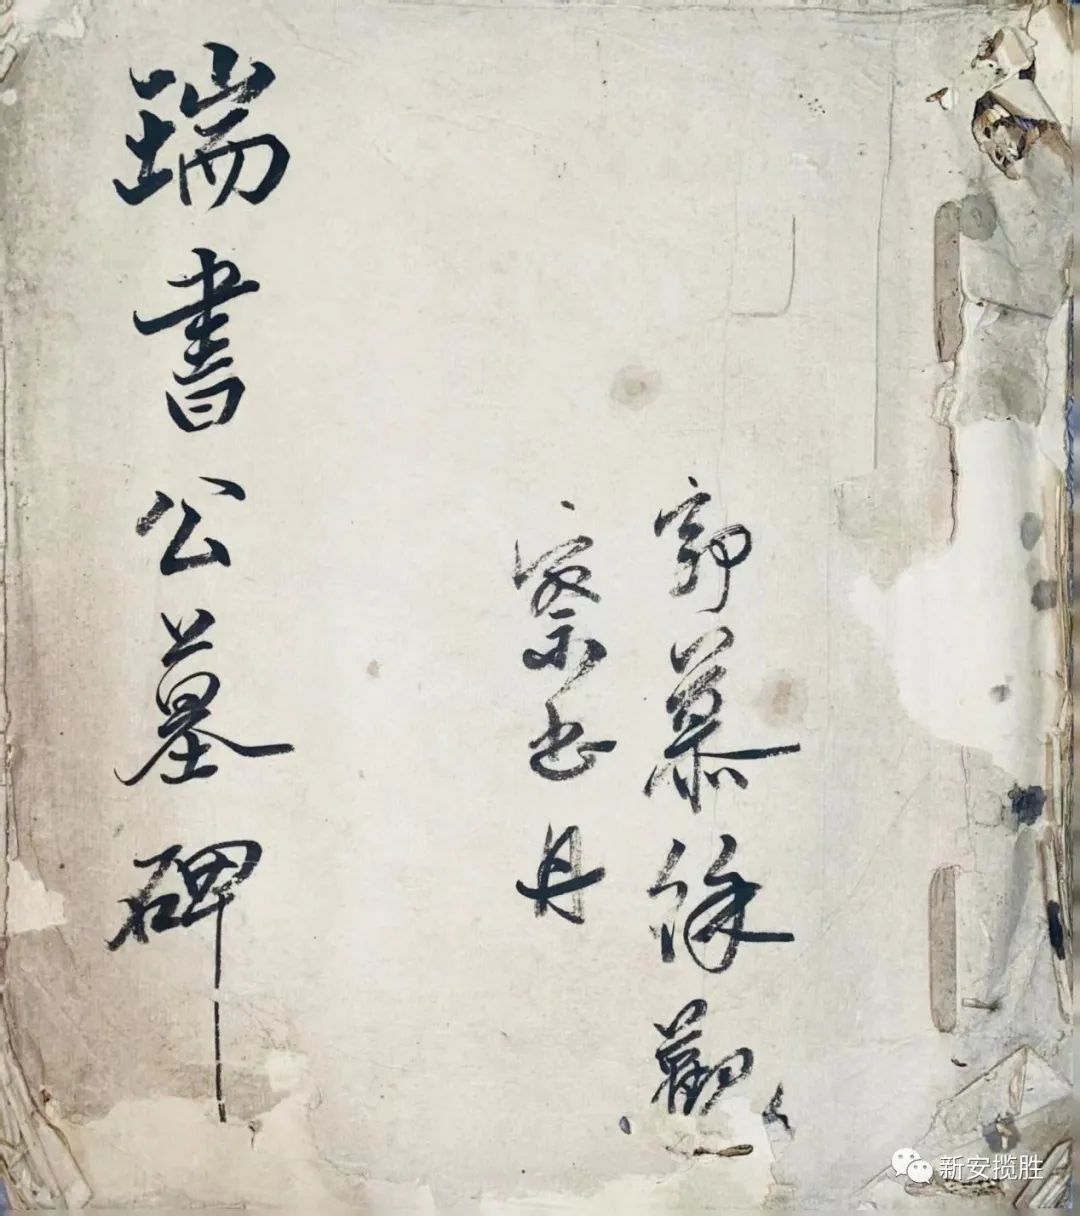 郭慕徐觀
察書丹
瑞書公墓碑
新安揽胜